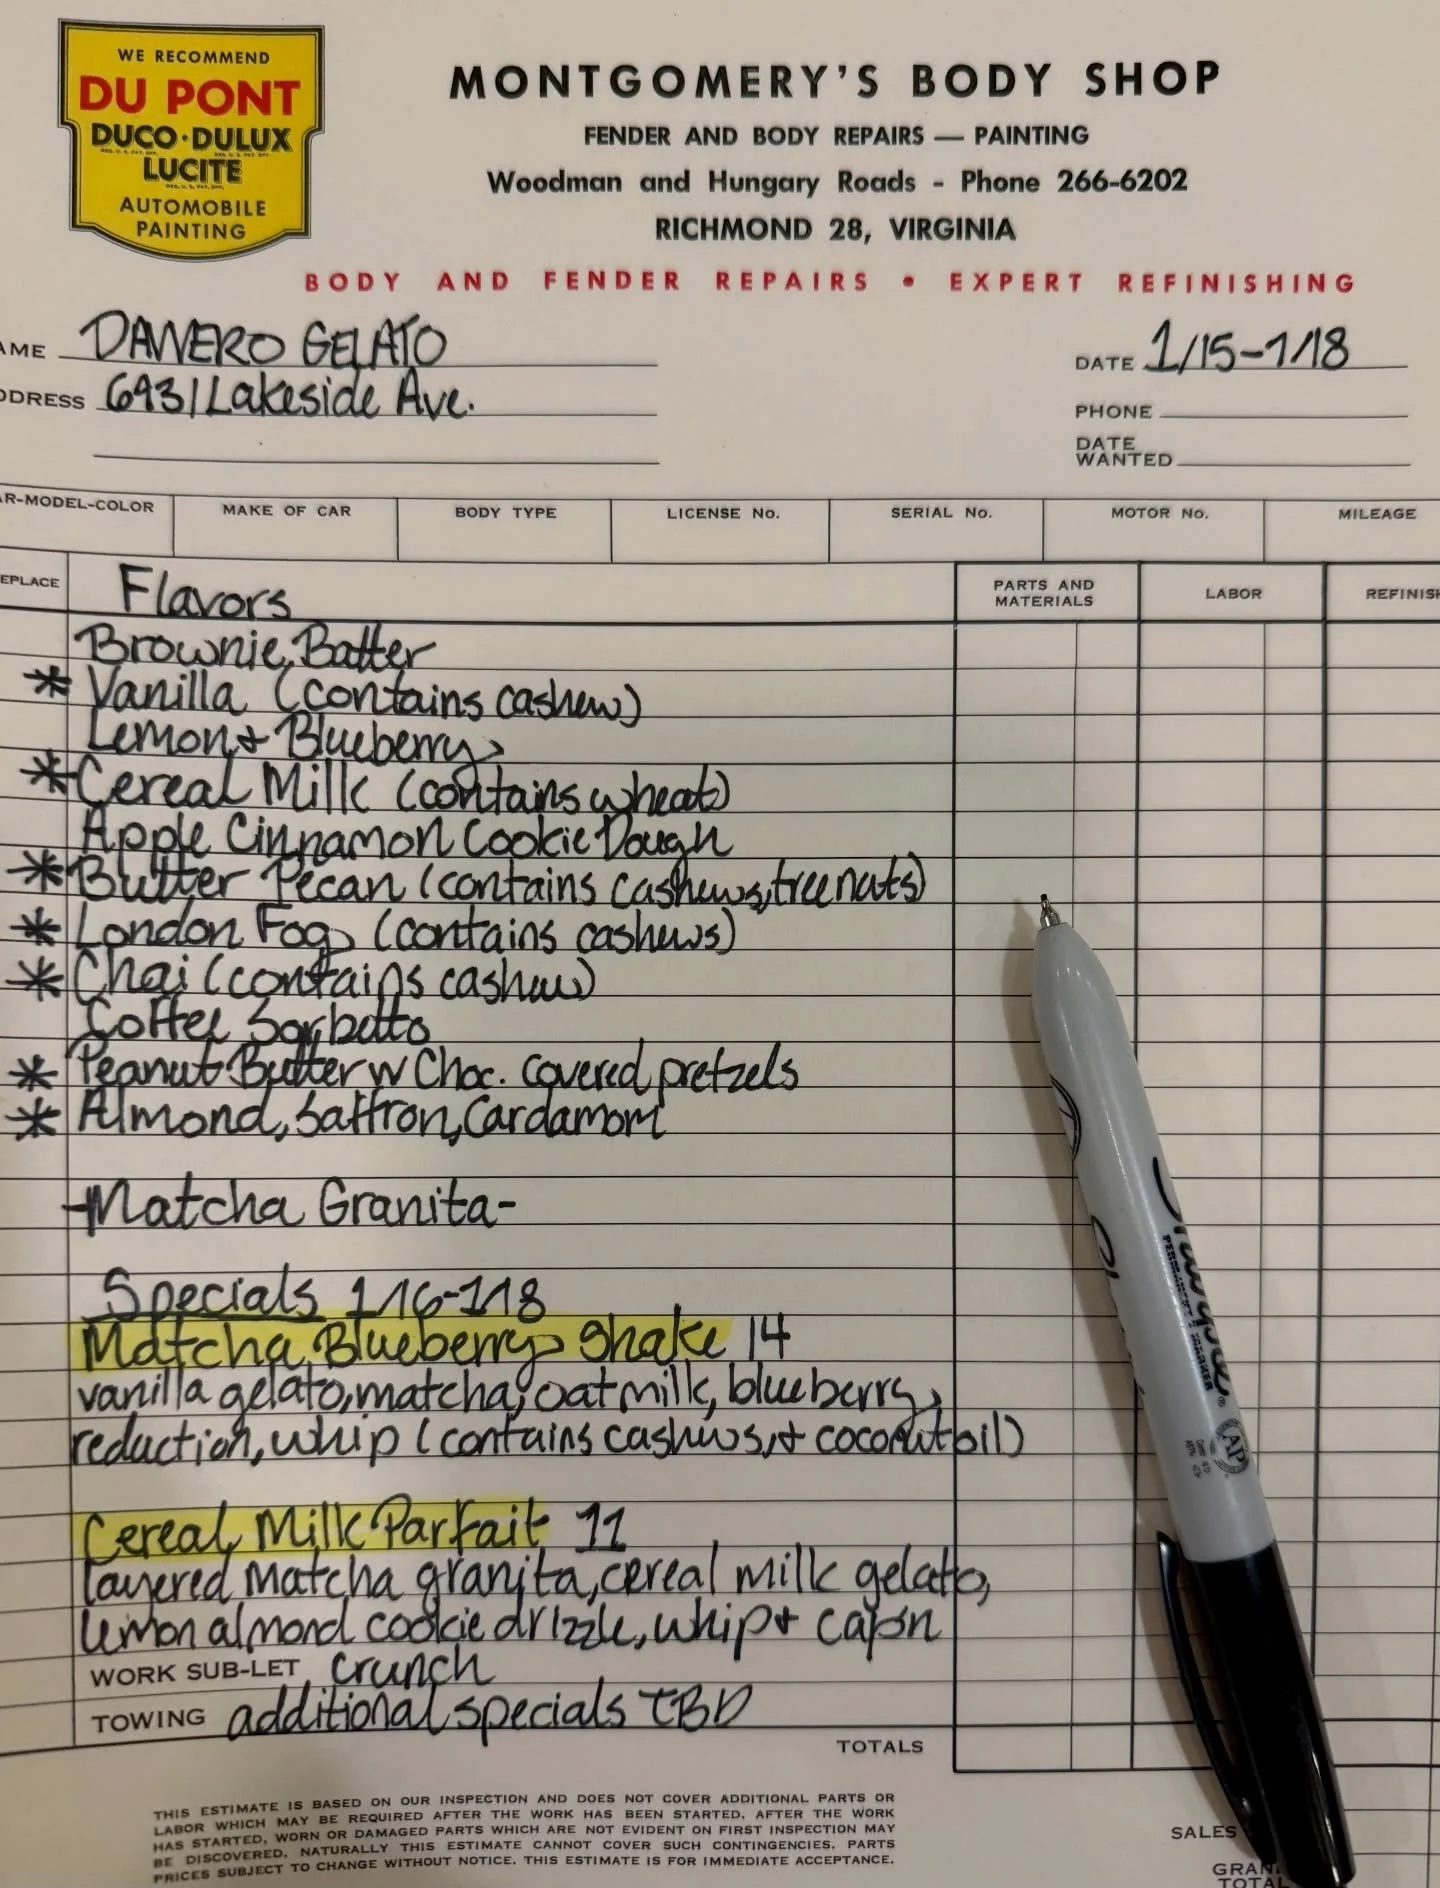 WE RECOMMEND
DU PONT
DUCO·DULUX
REG. U.S. PAT. OFF. REG. U.S. PAT. OFF.
LUCITE
REG. U.S. PAT. OFF.
AUTOMOBILE
PAINTING
MONTGOMERY'S BODY SHOP
FENDER AND BODY REPAIRS — PAINTING
Woodman and Hungary Roads - Phone 266-6202
RICHMOND 28, VIRGINIA
BODY AND FENDER REPAIRS • EXPERT REFINISHING
AME DAVVERO GELATO
DATE 1/15-1/18
DDRESS 6931 Lakeside Ave.
PHONE
DATE
WANTED
AR-MODEL-COLOR MAKE OF CAR BODY TYPE LICENSE No. SERIAL No. MOTOR No. MILEAGE
EPLACE Flavors PARTS AND MATERIALS LABOR REFINIS
Brownie Batter
* Vanilla (contains cashew)
Lemon + Blueberry
* Cereal Milk (contains wheat)
Apple Cinnamon Cookie Dough
* Butter Pecan (contains cashews, tree nuts)
* London Fog (contains cashews)
* Chai (contains cashew)
Coffee Sorbetto
* Peanut Butter w Choc. covered pretzels
* Almond, Saffron, Cardamom
-Matcha Granita-
Specials 1/16-1/18
Matcha Blueberry Shake 14
vanilla gelato, matcha, oat milk, blueberry
reduction, whip (contains cashews, + coconut oil)
Cereal Milk Parfait 11
layered matcha granita, cereal milk gelato,
lemon almond cookie drizzle, whip + cap'n
WORK SUB-LET crunch
TOWING additional specials TBD
TOTALS
THIS ESTIMATE IS BASED ON OUR INSPECTION AND DOES NOT COVER ADDITIONAL PARTS OR
LABOR WHICH MAY BE REQUIRED AFTER THE WORK HAS BEEN STARTED. AFTER THE WORK
HAS STARTED, WORN OR DAMAGED PARTS WHICH ARE NOT EVIDENT ON FIRST INSPECTION MAY
BE DISCOVERED. NATURALLY THIS ESTIMATE CANNOT COVER SUCH CONTINGENCIES. PARTS
PRICES SUBJECT TO CHANGE WITHOUT NOTICE. THIS ESTIMATE IS FOR IMMEDIATE ACCEPTANCE.
SALES
GRAN
TOTAL
AP